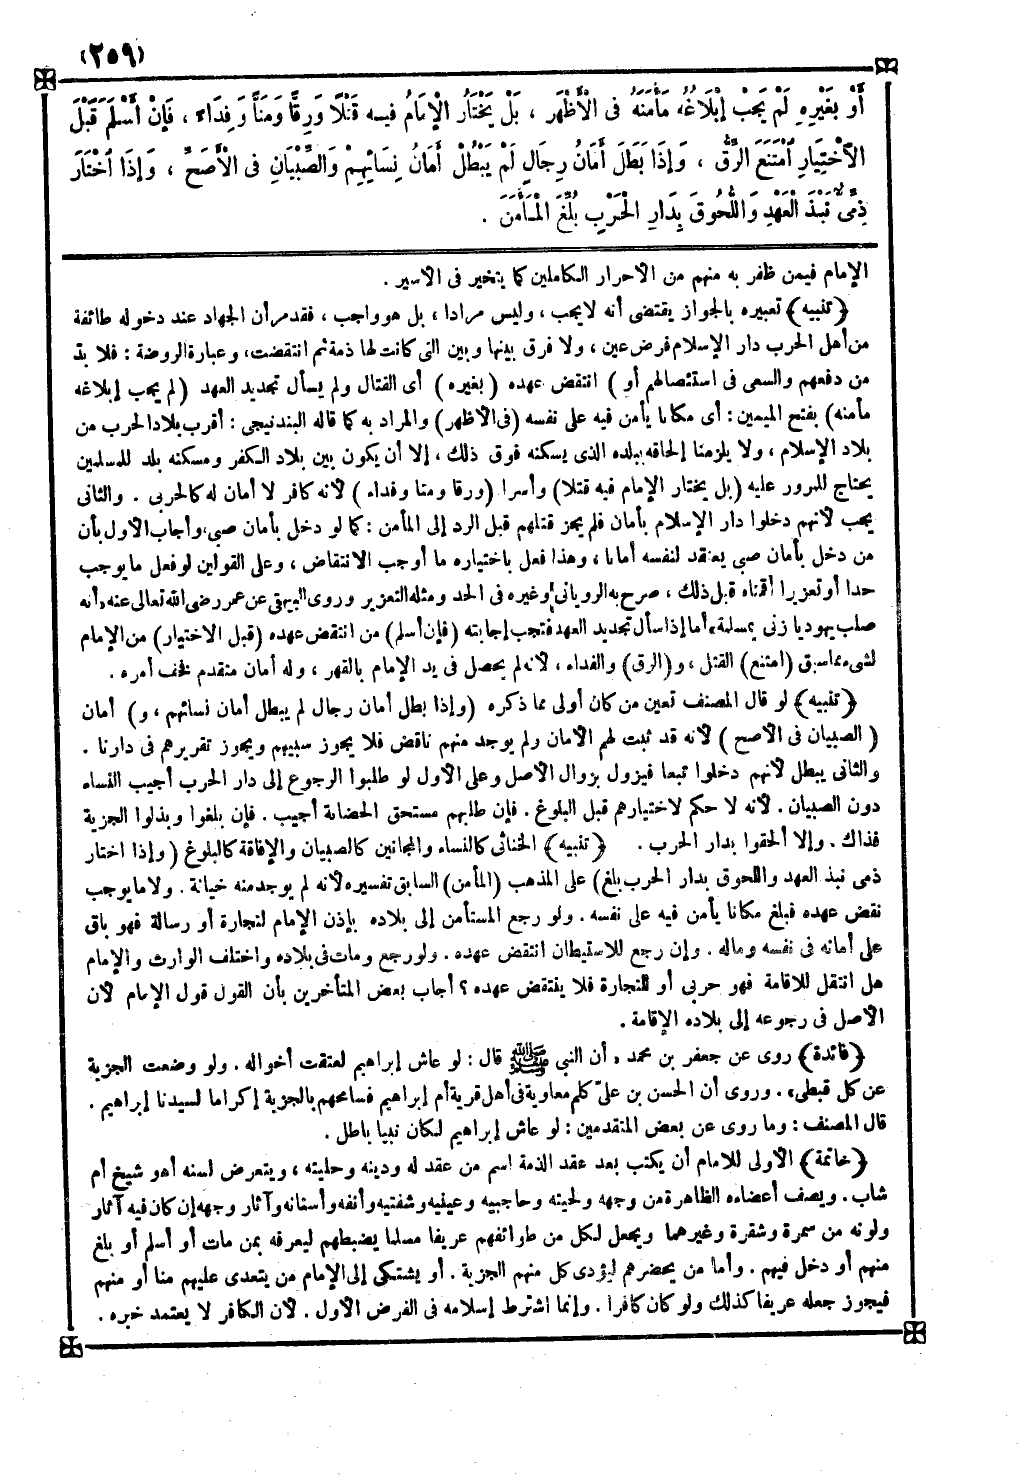 (٢٥٩)
أَوْ بِغَيْرِهِ لَمْ يَجِبْ إِبْلَاغُهُ مَأْمَنَهُ فِى الْأَظْهَرِ ، بَلْ يَخْتَارُ الْإِمَامُ فِيهِ قَتْلًا وَرِقًّا وَمَنًّا وَفِدَاءً ، فَإِنْ أَسْلَمَ قَبْلَ
الِاخْتِيَارِ امْتَنَعَ الرِّقُّ ، وَإِذَا بَطَلَ أَمَانُ رِجَالٍ لَمْ يَبْطُلْ أَمَانُ نِسَائِهِمْ وَالصِّبْيَانِ فِى الْأَصَحِّ ، وَإِذَا اخْتَارَ
ذِمِّىٌّ نَبْذَ الْعَهْدِ وَاللُّحُوقَ بِدَارِ الْحَرْبِ بُلِّغَ الْمَأْمَنَ .
الإمام فيمن ظفر به منهم من الأحرار الكاملين كما يتخير فى الأسير .
﴿ تنبيه ﴾ تعبيره بالجواز يقتضى أنه لايجب ، وليس مرادا ، بل هو واجب ، فقد مر أن الجهاد عند دخوله طائفة
من أهل الحرب دار الإسلام فرض عين ، ولا فرق بينها وبين التى كانت لها ذمة ثم انتقضت، وعبارة الروضة : فلا بد
من دفعهم والسعى فى استئصالهم أو ) انتقض عهده ( بغيره ) أى القتال ولم يسأل تجديد العهد (لم يجب إبلاغه
مأمنه) بفتح الميمين : أى مكانا يأمن فيه على نفسه (فى الأظهر) والمراد به كما قاله البندنيجى : أقرب بلاد الحرب من
بلاد الإسلام ، ولا يلزمنا إلحاقه ببلده الذى يسكنه فوق ذلك ، إلا أن يكون بين بلاد الكفر ومسكنه بلد للمسلمين
يحتاج للمرور عليه (بل يختار الإمام فيه قتلا) وأسرا (ورقا ومنا وفداء ) لأنه كافر لا أمان له كالحربى . والثانى
يجب لأنهم دخلوا دار الإسلام بأمان فلم يجز قتلهم قبل الرد إلى المأمن : كما لو دخل بأمان صبى، وأجاب الأول بأن
من دخل بأمان صبى يعتقد لنفسه أمانا ، وهذا فعل باختياره ما أوجب الانتقاض ، وعلى القولين لو فعل مايوجب
حدا أو تعزيرا أقمناه قبل ذلك ، صرح به الرويانى وغيره فى الحد ومثله التعزير وروى البيهقى عن عمر رضى الله تعالى عنه «أنه
صلب يهوديا زنى بمسلمة» أما إذا سأل تجديد العهد فتجب إجابته (فإن أسلم) من انتقض عهده (قبل الاختيار) من الإمام
لشىء مما سبق (امتنع) القتل ، و (الرق) والفداء ، لأنه لم يحصل فى يد الإمام بالقهر ، وله أمان متقدم فخف أمره .
﴿ تنبيه ﴾ لو قال المصنف تعين من كان أولى مما ذكره (وإذا بطل أمان رجال لم يبطل أمان نسائهم ، و) أمان
( الصبيان فى الأصح ) لأنه قد ثبت لهم الأمان ولم يوجد منهم ناقض فلا يجوز سبيهم ويجوز تقريرهم فى دارنا .
والثانى يبطل لأنهم دخلوا تبعا فيزول بزوال الأصل وعلى الأول لو طلبوا الرجوع إلى دار الحرب أجيب النساء
دون الصبيان . لأنه لا حكم لاختيارهم قبل البلوغ . فإن طلبهم مستحق الحضانة أجيب . فإن بلغوا وبذلوا الجزية
فذاك . وإلا ألحقوا بدار الحرب . ﴿ تنبيه ﴾ الخناثى كالنساء والمجانين كالصبيان والإفاقة كالبلوغ (وإذا اختار
ذمى نبذ العهد واللحوق بدار الحرب بلغ) على المذهب (المأمن) السابق تفسيره لأنه لم يوجد منه خيانة . ولا ما يوجب
نقض عهده فبلغ مكانا يأمن فيه على نفسه . ولو رجع المستأمن إلى بلاده بإذن الإمام لتجارة أو رسالة فهو باق
على أمانه فى نفسه وماله . وإن رجع للاستيطان انتقض عهده . ولو رجع ومات فى بلاده واختلف الوارث والإمام
هل انتقل للاقامة فهو حربى أو للتجارة فلا ينتقض عهده ؟ أجاب بعض المتأخرين بأن القول قول الإمام لأن
الأصل فى رجوعه إلى بلاده الإقامة .
﴿ فائدة ﴾ روى عن جعفر بن محمد « أن النبى ﷺ قال : لو عاش إبراهيم لعتقت أخواله . ولو وضعت الجزية
عن كل قبطى» . وروى أن الحسن بن علىّ كلم معاوية فى أهل قرية أم إبراهيم فسامحهم بالجزية إكراما لسيدنا إبراهيم .
قال المصنف : وما روى عن بعض المتقدمين : لو عاش إبراهيم لكان نبيا باطل .
﴿ خاتمة ﴾ الأولى للامام أن يكتب بعد عقد الذمة اسم من عقد له ودينه وحليته ، ويتعرض لسنه أهو شيخ أم
شاب . ويصف أعضاءه الظاهرة من وجهه ولحيته وحاجبيه وعينيه وشفتيه وأنفه وأسنانه وآثار وجهه إن كان فيه آثار
ولونه من سمرة وشقرة وغيرهما ويجعل لكل من طوائفهم عريفا مسلما يضبطهم ليعرفه بمن مات أو أسلم أو بلغ
منهم أو دخل فيهم . وأما من يحضرهم ليؤدى كل منهم الجزية . أو يشتكى إلى الإمام من يتعدى عليهم منا أو منهم
فيجوز جعله عريفا كذلك ولو كان كافرا . وإنما اشترط إسلامه فى الغرض الأول . لأن الكافر لا يعتمد خبره .